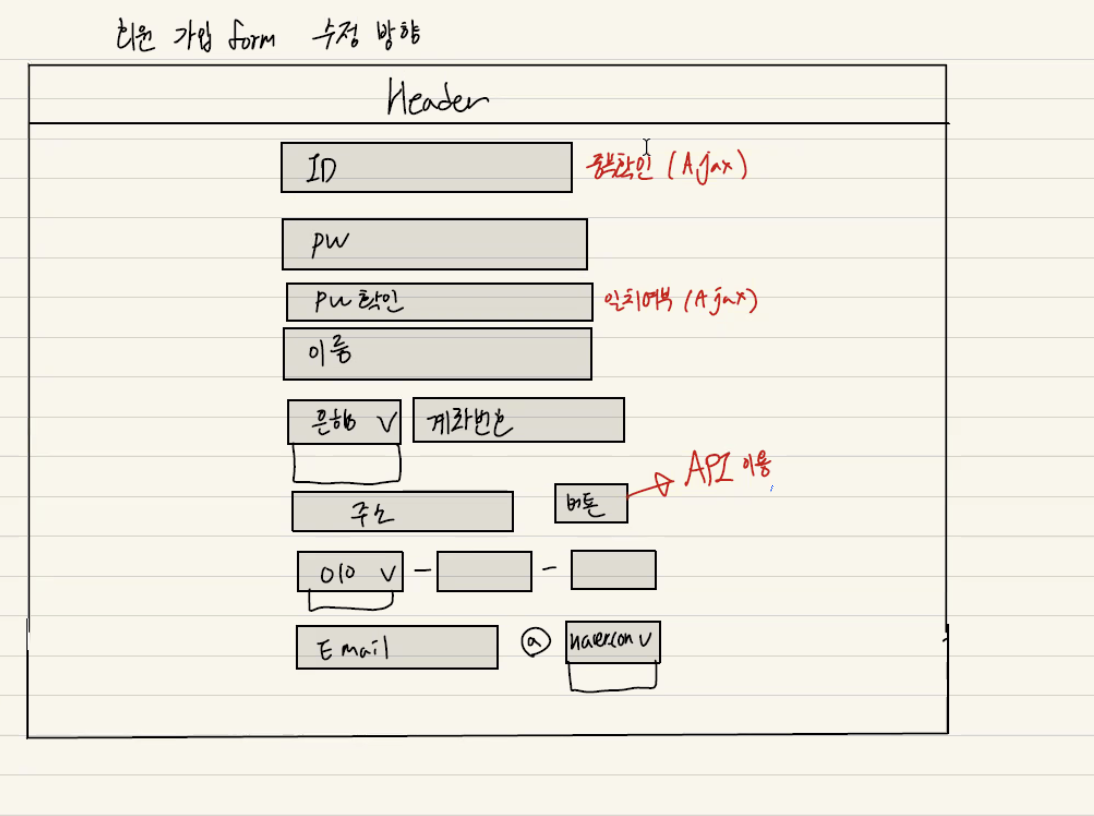 회원 가입 form 수정 방향
Header
ID 중복확인 (Ajax)
PW
PW 확인 일치여부 (Ajax)
이름
은행 V 계좌번호
API 이용
주소 버튼
010 V - -
Email @ naver.com V